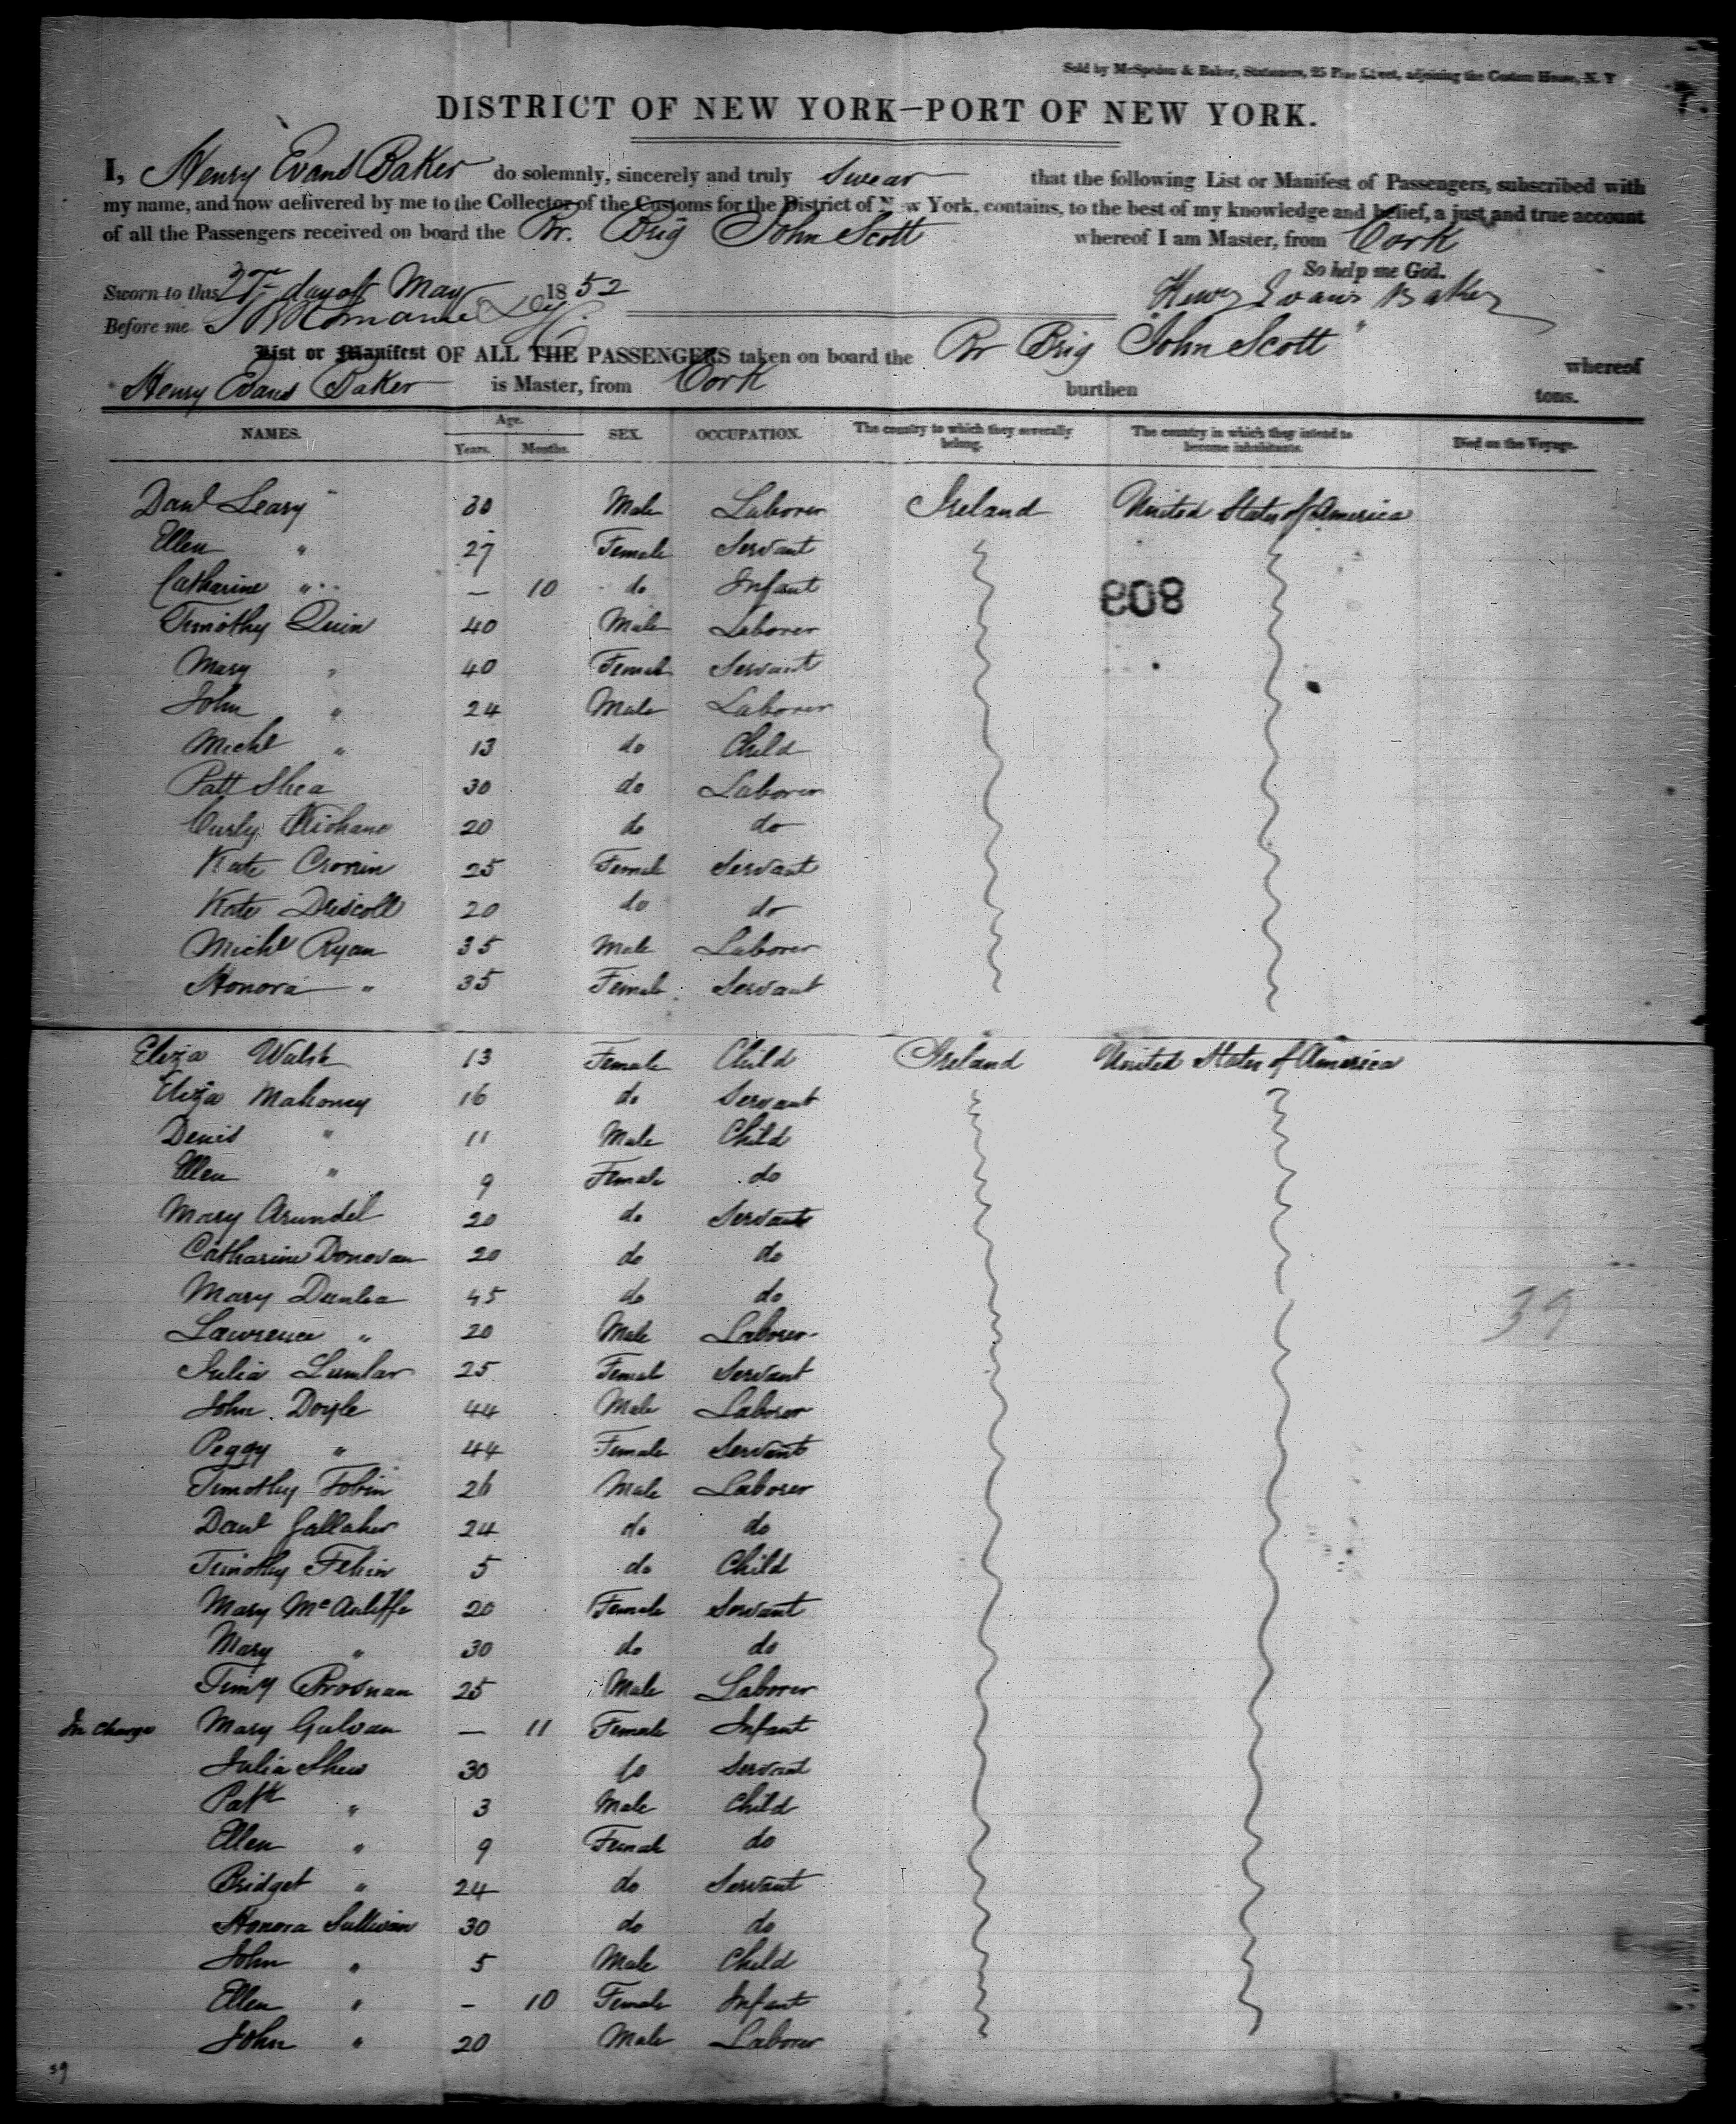 Sold by McSpedon & Baker, Stationers, 25 Pine Street, adjoining the Custom House, N. Y
DISTRICT OF NEW YORK—PORT OF NEW YORK.
I, Henry Evans Baker do solemnly, sincerely and truly Swear that the following List or Manifest of Passengers, subscribed with
my name, and now delivered by me to the Collector of the Customs for the District of New York, contains, to the best of my knowledge and belief, a just and true account
of all the Passengers received on board the Br. Brig John Scott whereof I am Master, from Cork
So help me God.
Sworn to this 27 day of May 1852 Henry Evans Baker
Before me
List or Manifest OF ALL THE PASSENGERS taken on board the Br Brig "John Scott" whereof
Henry Evans Baker is Master, from Cork burthen tons.
NAMES. Age. Years. Months. SEX. OCCUPATION. The country to which they severally belong. The country in which they intend to become inhabitants. Died on the Voyage.
Danl Leary 30 Male Laborer Ireland United States of America
Ellen " 27 Female Servant
Catharine " — 10 do Infant 808
Timothy Quin 40 Male Laborer
Mary " 40 Female Servant
John " 24 Male Laborer
Michl " 13 do Child
Patt Shea 30 do Laborer
Curly 20 do do
Kate Cronin 25 Female Servant
Kate Driscoll 20 do do
Michl Ryan 35 Male Laborer
Honora " 35 Female Servant
Eliza Walsh 13 Female Child Ireland United States of America
Eliza Mahoney 16 do Servant
Denis " 11 Male Child
Ellen " 9 Female do
Mary Arundel 20 do Servant
Catharine Donovan 20 do do
Mary Dunlea 45 do do 39
Lawrence " 20 Male Laborer
Julia 25 Female Servant
John Doyle 44 Male Laborer
Peggy " 44 Female Servant
Timothy Tobin 26 Male Laborer
Danl Gallaher 24 do do
Timothy 5 do Child
Mary McAuliffe 20 Female Servant
Mary " 30 do do
Timy Brosnan 25 Male Laborer
In charge Mary Galvan — 11 Female Infant
Julia Shea 30 do Servant
Patk " 3 Male Child
Ellen " 9 Female do
Bridget " 24 do Servant
Honora Sullivan 30 do do
John " 5 Male Child
Ellen " - 10 Female Infant
John " 20 Male Laborer
39